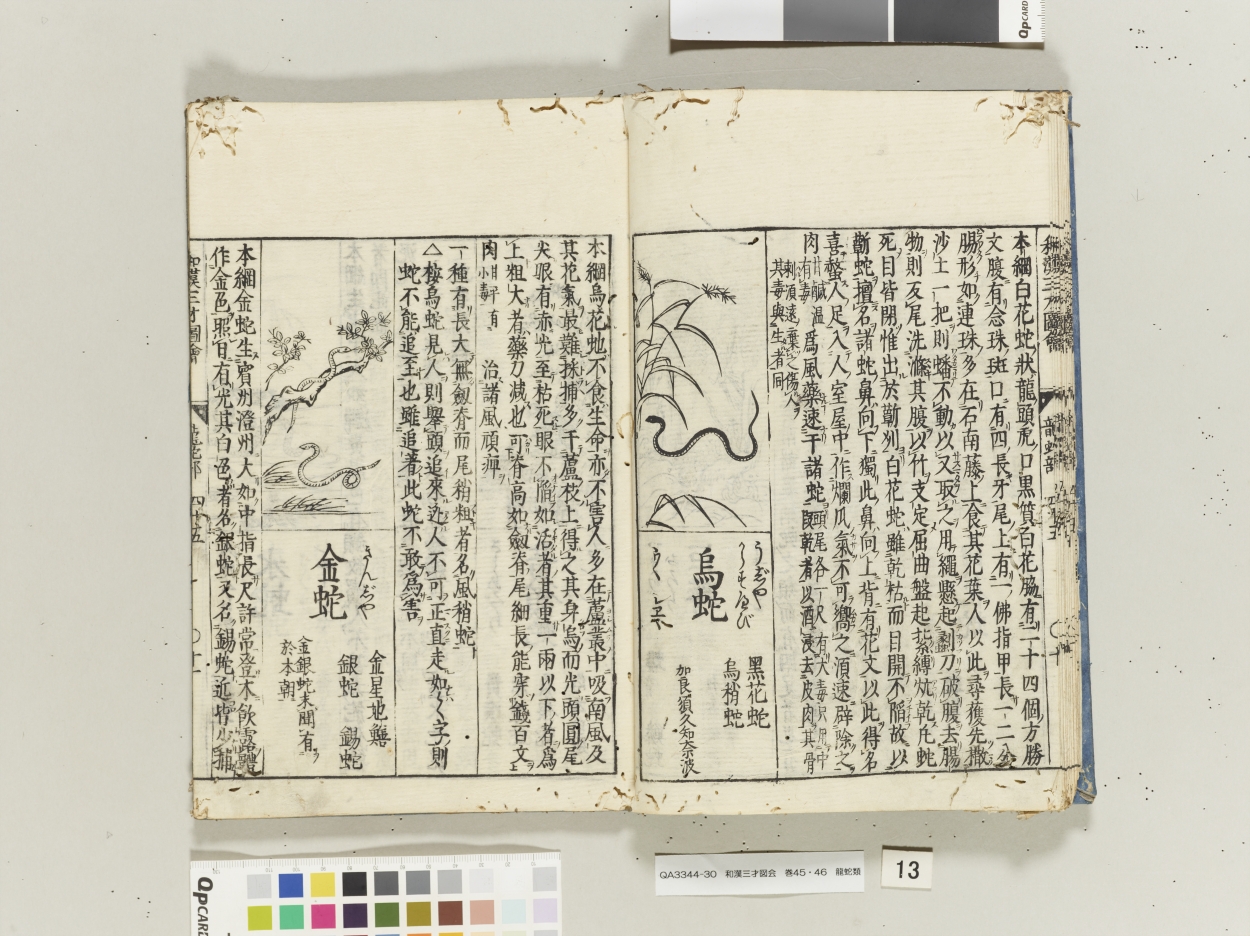 本綱白花蛇狀龍頭虎口黒質白花脇有二十四個方勝
文腹有念珠斑口有四長牙尾上有一佛指甲長一二分
腸形如連珠多在石南藤上食其花葉人以此尋獲先撒
沙土一把則蟠不動以叉取之用繩懸起剖刀破腹去腸
物則反尾洗滌其腹以竹支定屈曲盤起紮縛炕乾凡蛇
死目皆閉惟出於蘄州白花蛇雖乾枯而目開不陷故以
蘄蛇擅名諸蛇鼻向下獨此鼻向上背有花文以此得名
喜螫人足入人室屋中作爛瓜氣不可嚮之須速辟除之
肉甘鹹温有毒 爲風藥速于諸蛇頭尾各一尺有大毒只用中
其毒與生者同
烏蛇
うじや
黑花蛇
烏稍蛇
加良須久知奈波
本綱烏花虵不食生命亦不害人多在蘆叢中吸南風及
其花氣最難採捕多于蘆枝上得之其身烏而光頭圓尾
尖眼有赤光至枯死眼不陷如活者其重一兩以下者爲
上粗大者藥力減也可脊高如劔脊尾細長能穿錢百文
肉甘平小有毒 治諸風頑痹
一種有長大無劔脊而尾稍粗者名風稍蛇
△按烏蛇見人則擧頭追來逃人不可正直走如く字則
蛇不能追至也雖追著此蛇不敢爲害
金蛇
きんじや
金星地鱔
銀蛇 錫蛇
金銀蛇未聞有
於本朝
本綱金蛇生賓州澄州大如中指長尺許常登木飲露體
作金色照日有光其白色者名銀蛇又名錫蛇近皆少捕
和漢三才圖會
龍蛇部 四十五
QA3344-30 和漢三才図会 巻45・46 龍蛇類
13
QpCARD
QpCARD